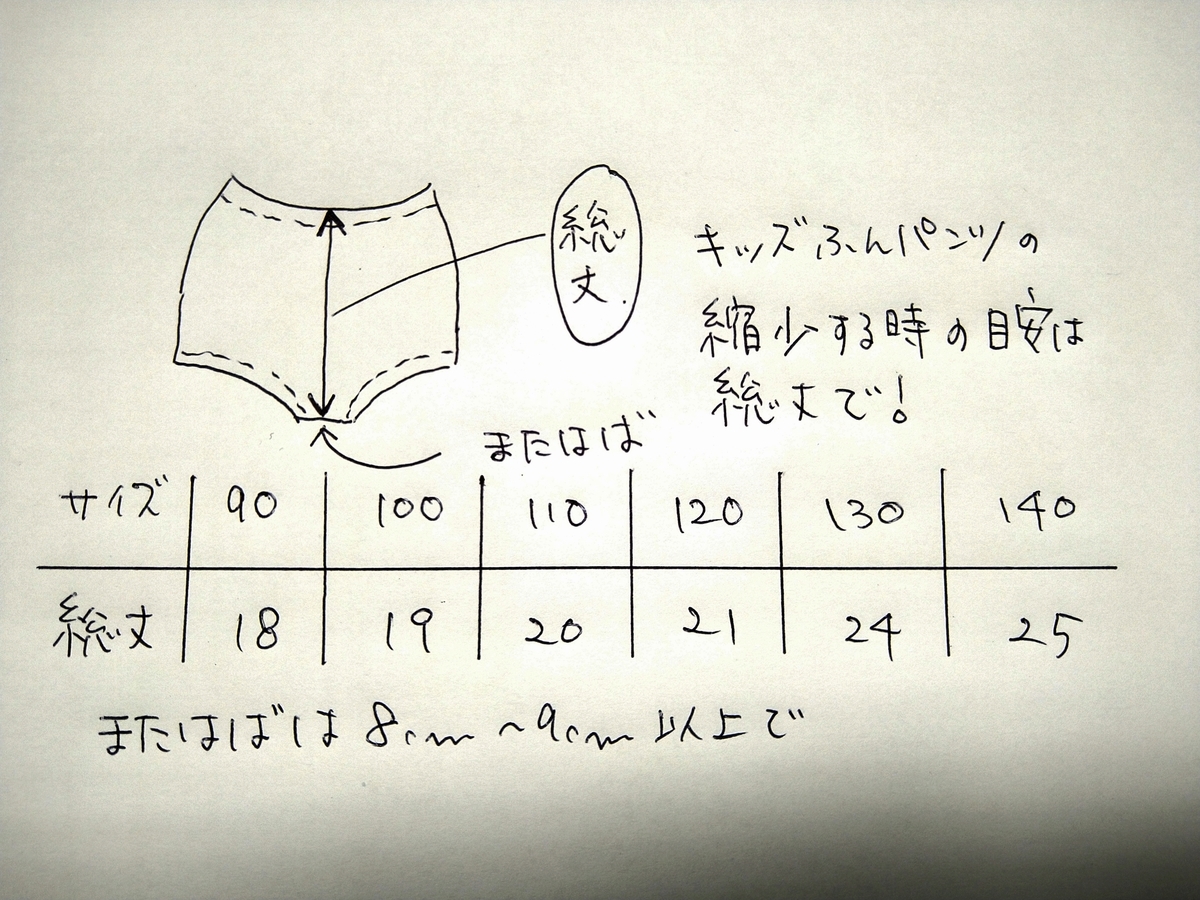 総
丈
キッズふんパンツの
縮少する時の目安は
総丈で!
またはば
サイズ 90 100 110 120 130 140
総丈 18 19 20 21 24 25
またはばは 8cm~9cm 以上で